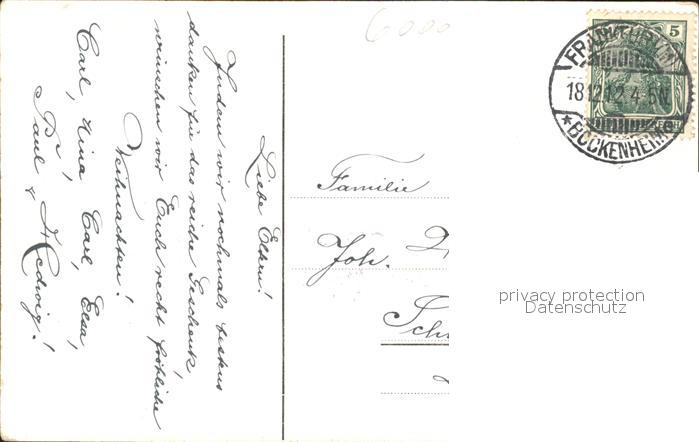 Liebe Eltern!
Indem wir nochmals bestens
danken für das reiche Geschenk,
wünschen wir Euch recht fröhliche
Weihnachten!
Carl, Nina, Carl, Elsa,
Paul & Hedwig!
6000
Familie
Joh.
Sch
5
FRANKFURT
18.12.12.4-5N.
*BOCKENHEIM
privacy protection
Datenschutz